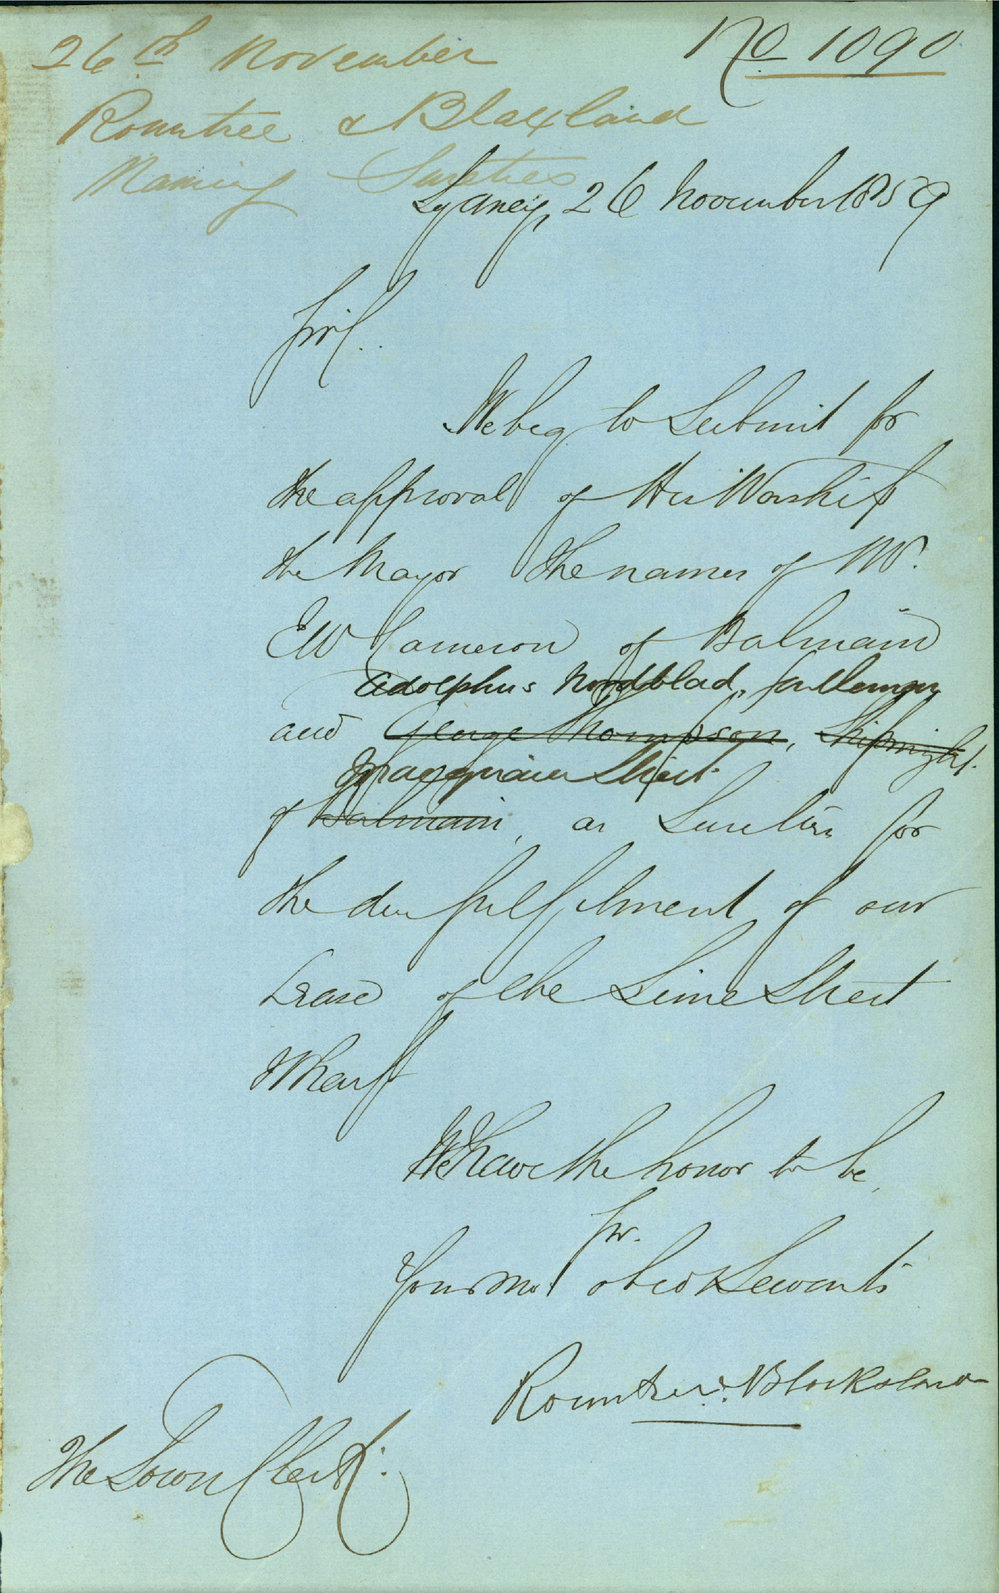 No 1090
26th November
Rountree & Blaxland
Naming Sureties
Sydney, 26 November 1859
Sir.
We beg to Submit for
the approval of His Worship
the Mayor the names of Mr.
E W Cameron of Balmain
Adolphus Nordblad, gentleman
and George Thompson, Shipwright
Macquarie Street
of Balmain, as Sureties for
the due fulfilment of our
Lease of the Lime Street
Wharf
We have the honor to be,
Sir.
Your Mo obed Servants
Rountree & Blacksland
The Town Clerk.